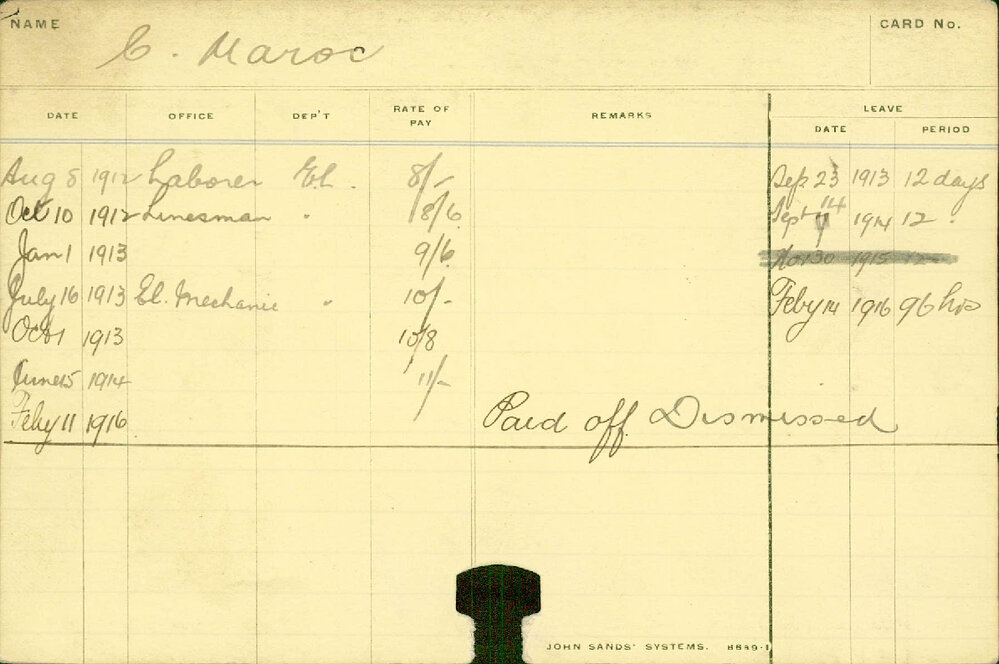 NAME CARD No.
C. Maroc
DATE OFFICE DEP'T RATE OF PAY REMARKS LEAVE
DATE PERIOD
Aug 8 1912 Laborer El. 8/- Sep. 23 1913 12 days
Oct 10 1912 Linesman " 8/6 Sept 14 1914 12 "
Jan 1 1913 9/6 Nov 30 1915 12
July 16 1913 El. Mechanic " 10/- Feby 14 1916 96 hrs
Oct 1 1913 10/8
June 15 1914 11/-
Feby 11 1916 Paid off Dismissed
JOHN SANDS' SYSTEMS.